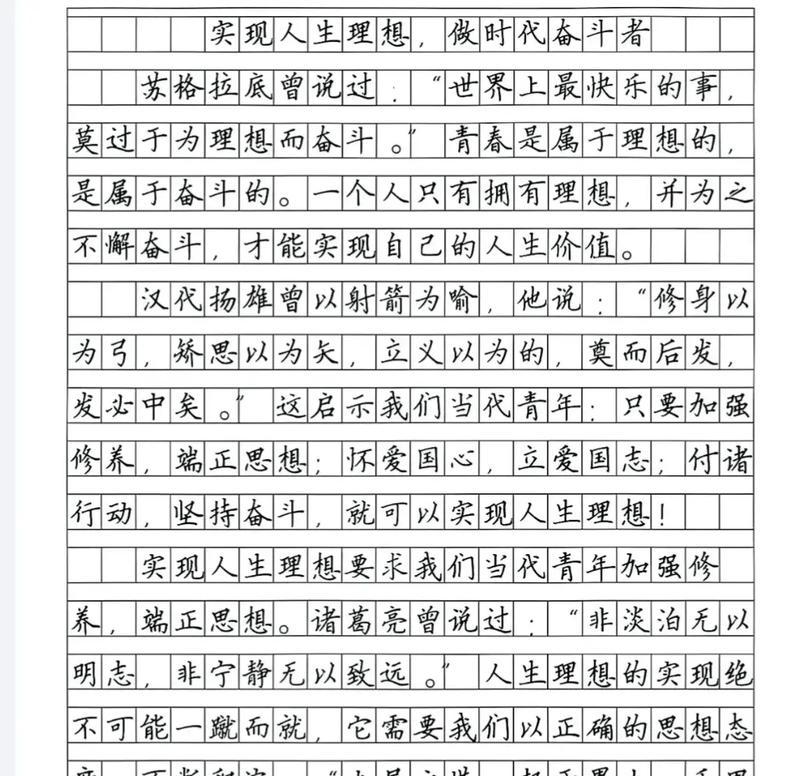 实现人生理想，做时代奋斗者
苏格拉底曾说过：“世界上最快乐的事，
莫过于为理想而奋斗。”青春是属于理想的，
是属于奋斗的。一个人只有拥有理想，并为之
不懈奋斗，才能实现自己的人生价值。
汉代扬雄曾以射箭为喻，他说：“修身以
为弓，矫思以为矢，立义以为的，奠而后发，
发必中矣。”这启示我们当代青年：只要加强
修养，端正思想；怀爱国心，立爱国志；付诸
行动，坚持奋斗，就可以实现人生理想！
实现人生理想要求我们当代青年加强修
养，端正思想。诸葛亮曾说过：“非淡泊无以
明志，非宁静无以致远。”人生理想的实现绝
不可能一蹴而就，它需要我们以正确的思想态